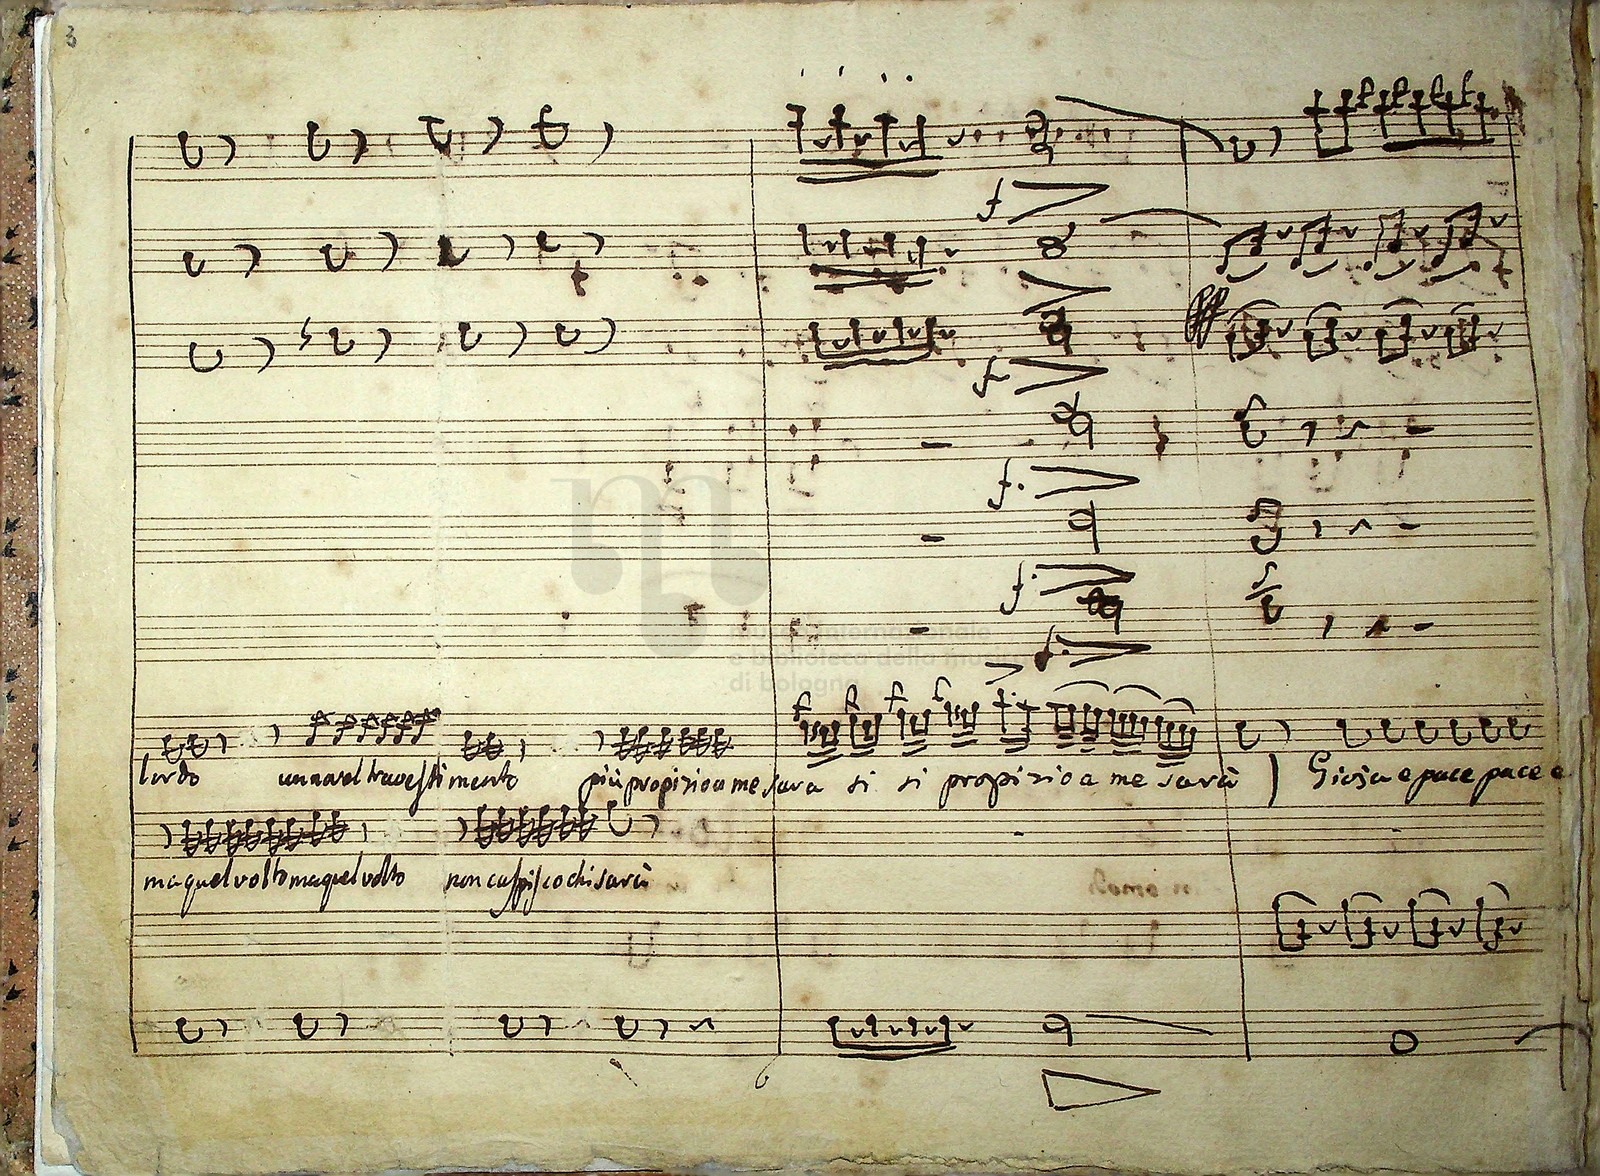 3
f
f
ff
f.
f.
f.
lordo un novel travestimento più propizio a me sara si si propizio a me sarà Gioja e pace pace e
ma quel volto ma quel volto non capisco chi sarà
museo internazionale
e biblioteca della musica
di bologna